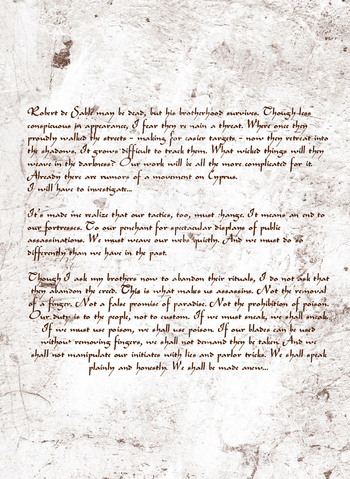 Robert de Sablé may be dead, but his brotherhood survives. Though less
conspicuous in appearance, I fear they remain a threat. Where once they
proudly walked the streets - making for easier targets - now they retreat into
the shadows. It grows difficult to track them. What wicked things will they
weave in the darkness? Our work will be all the more complicated for it.
Already there are rumors of a movement on Cyprus.
I will have to investigate...
It's made me realize that our tactics, too, must change. It means an end to
our fortresses. To our penchant for spectacular displays of public
assassinations. We must weave our webs quietly. And we must do so
differently than we have in the past.
Though I ask my brothers now to abandon their rituals, I do not ask that
they abandon the creed. This is what makes us assassins. Not the removal
of a finger. Not a false promise of paradise. Not the prohibition of poison.
Our duty is to the people, not to custom. If we must sneak, we shall sneak.
If we must use poison, we shall use poison. If our blades can be used
without removing fingers, we shall not demand they be taken. And we
shall not manipulate our initiates with lies and parlor tricks. We shall speak
plainly and honestly. We shall be made anew...